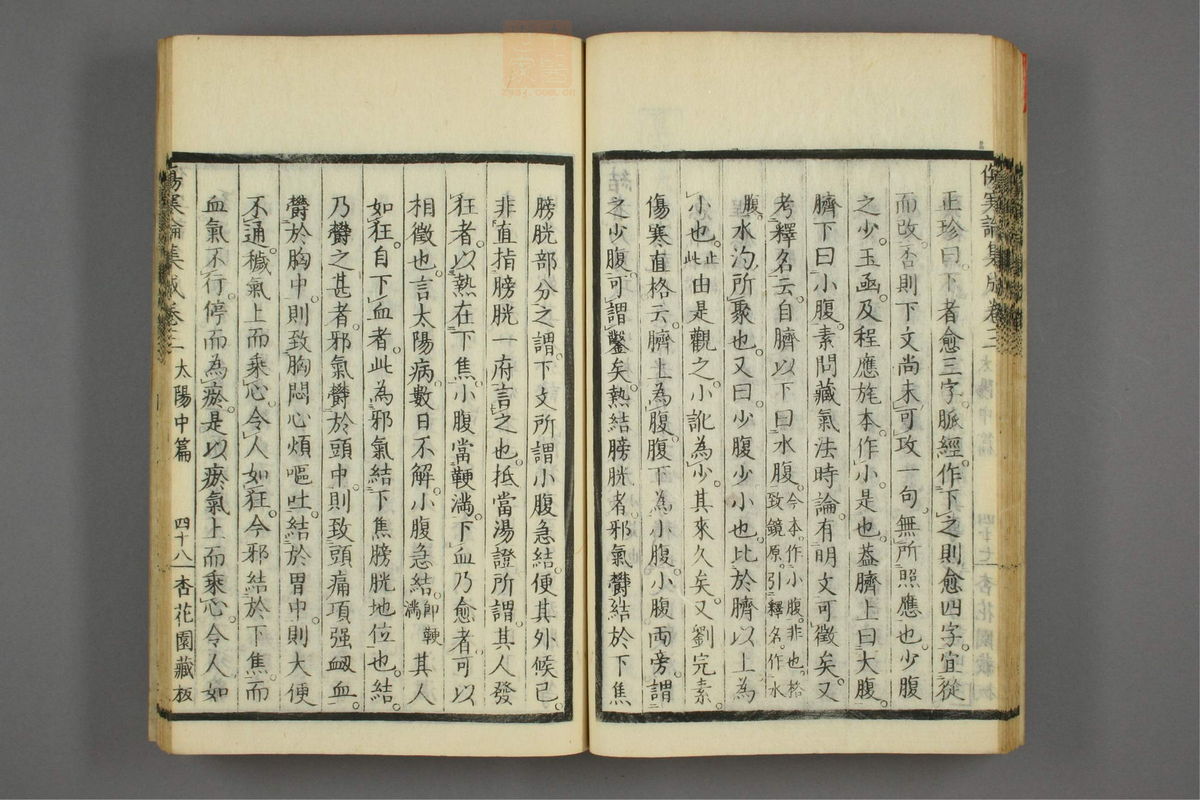 正珍曰下者愈三字脈經作下之則愈四字宜從
而改否則下文尚未可攻一句無所照應也少腹
之少玉函及程應旄本作小是也蓋臍上曰大腹
臍下曰小腹素問藏氣法時論有明文可徵矣又
考釋名云自臍以下曰水腹今本作小腹非也格致鏡原引釋名作水
腹水汋所聚也又曰少腹少小也比於臍以上為
小也止此由是觀之小訛為少其來久矣又劉完素
傷寒直格云臍上為腹腹下為小腹小腹兩旁謂
之少腹可謂鑿矣熱結膀胱者邪氣鬱結於下焦
膀胱部分之謂下文所謂小腹急結便其外候已
非直指膀胱一府言之也抵當湯證所謂其人發
狂者以熱在下焦小腹當鞕滿下血乃愈者可以
相徵也言太陽病數日不解小腹急結即鞕滿其人
如狂自下血者此為邪氣結下焦膀胱地位也結
乃鬱之甚者邪氣鬱於頭中則致頭痛項强衂血
鬱於胸中則致胸悶心煩嘔吐結於胃中則大便
不通穢氣上而乘心令人如狂今邪結於下焦而
血氣不行停而為瘀是以瘀氣上而乘心令人如
太陽中篇 四十八 杏花園藏板